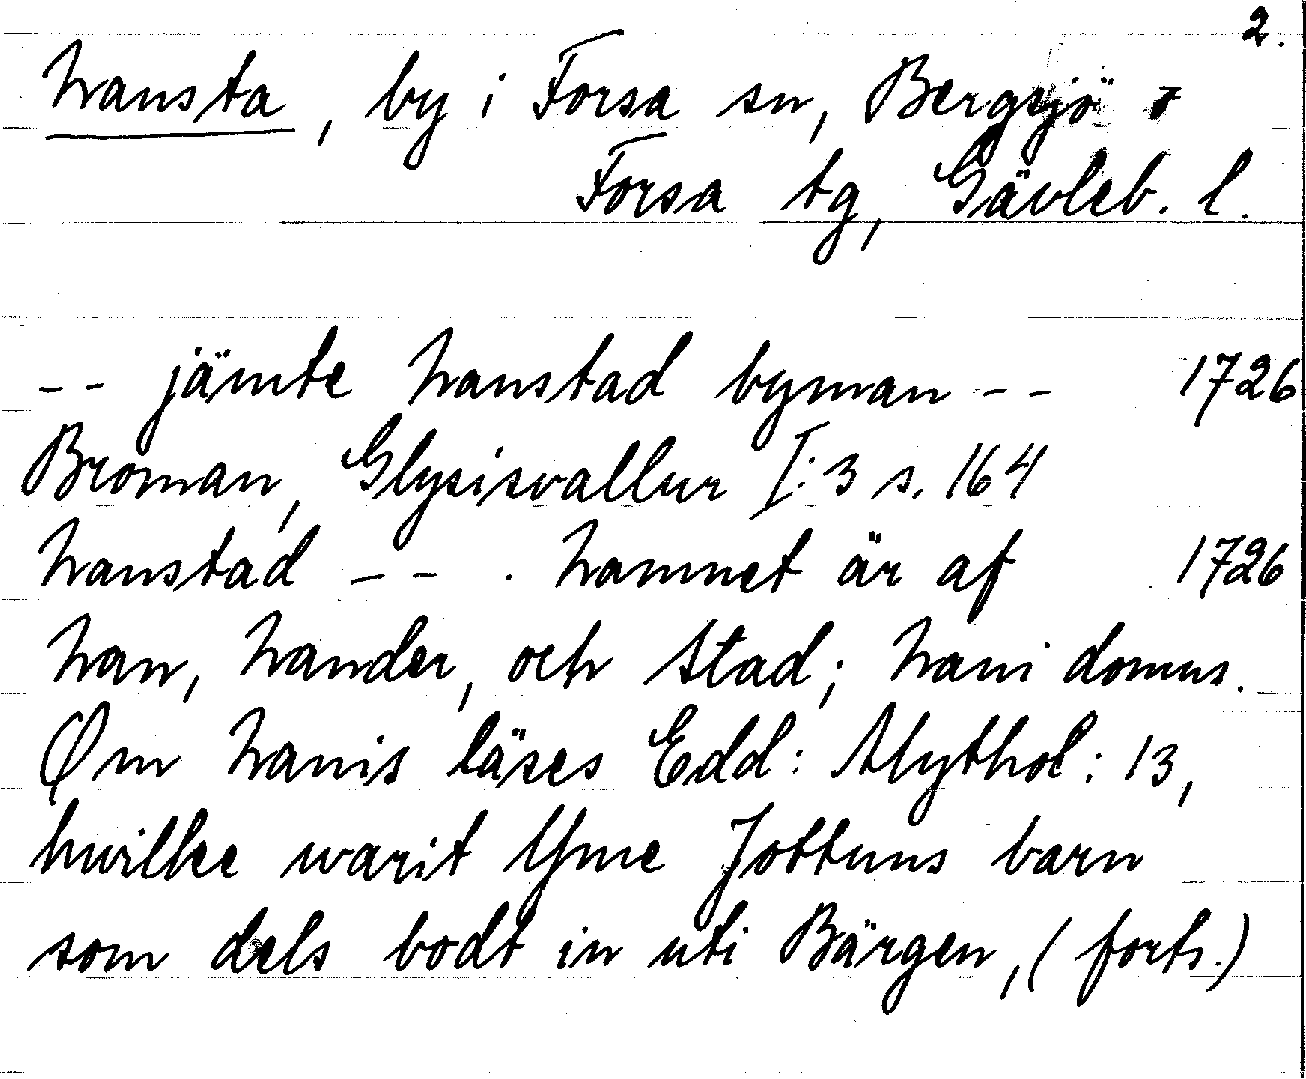 2.
Nansta, by i Forsa sn, Bergsjö o
Forsa tg, Gävleb. l.
-- jämte Nanstad byman -- 1726
Broman, Glysisvallur I:3 s. 164
Nanstad -- . Namnet är af 1726
Nan, Nander, och stad; Nani domus.
Om Nanis läses Edd: Mythol: 13,
hwilke warit Yme Jottuns barn
som dels bodt in uti Bärgen, (forts.)